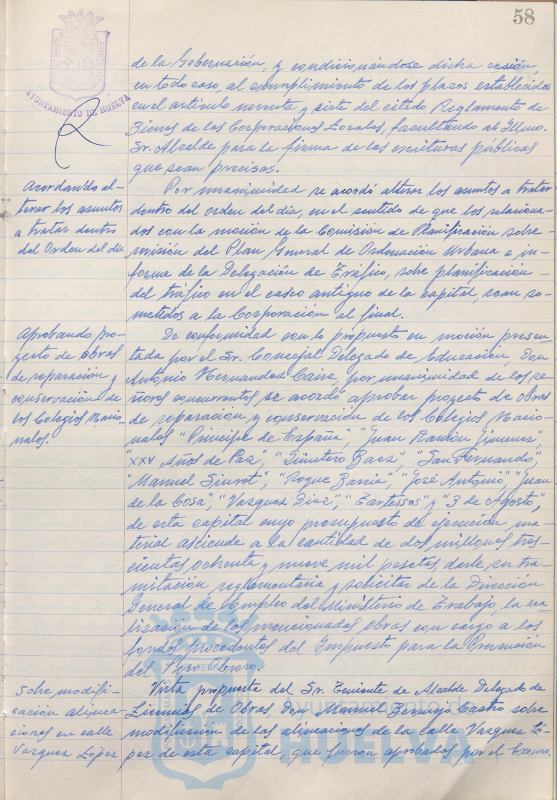 58
AYUNTAMIENTO DE HUELVA
de la Gobernación, y condicionándose dicha cesión,
en todo caso, al cumplimiento de los plazos establecidos
en el artículo noventa y siete del citado Reglamento de
Bienes de las Corporaciones Locales, facultando al Iltmo.
Sr. Alcalde para la firma de las escrituras públicas
que sean precisas.
Acordando al-
terar los asuntos
a tratar dentro
del Orden del día
Por unanimidad se acordó alterar los asuntos a tratar
dentro del orden del día, en el sentido de que los relaciona-
dos con la moción de la Comisión de Planificación sobre
revisión del Plan General de Ordenación Urbana e in-
forme de la Delegación de Tráfico, sobre planificación
del tráfico en el casco antiguo de la capital, sean so-
metidos a la Corporación al final.
Aprobando pro-
yecto de obras
de reparación y
conservación de
los Colegios Nacio-
nales.
De conformidad con lo propuesto en moción presen-
tada por el Sr. Concejal Delegado de Educación, Don
Antonio Hernandez Cane, por unanimidad de los se-
ñores concurrentes se acordó aprobar proyecto de obras
de reparación y conservación de los Colegios Nacio-
nales "Principe de España", "Juan Ramón Jimenez",
"XXV Años de Paz", "Quintero Baez", "San Fernando",
"Manuel Siurot", "Roque Barcia", "José Antonio", "Juan
de la Cosa", "Vazquez Diaz", "Tartessos" y "3 de Agosto",
de esta capital cuyo presupuesto de ejecución ma-
terial asciende a la cantidad de dos millones tres-
cientas ochenta y nueve mil pesetas, darle su tra-
mitación reglamentaria y solicitar de la Dirección
General de Empleo del Ministerio de Trabajo, la rea-
lización de las mencionadas obras con cargo a los
fondos procedentes del Impuesto para la Prevención
del Paro Obrero.
Sobre modifi-
cación alinea-
ciones en calle
Vazquez López
Vista propuesta del Sr. Teniente de Alcalde Delegado de
Licencias de Obras Don Manuel Bermejo Castro sobre
modificación de las alineaciones de la calle Vazquez Ló-
pez de esta capital, que fueron aprobadas por el Excmo.
HUELVA